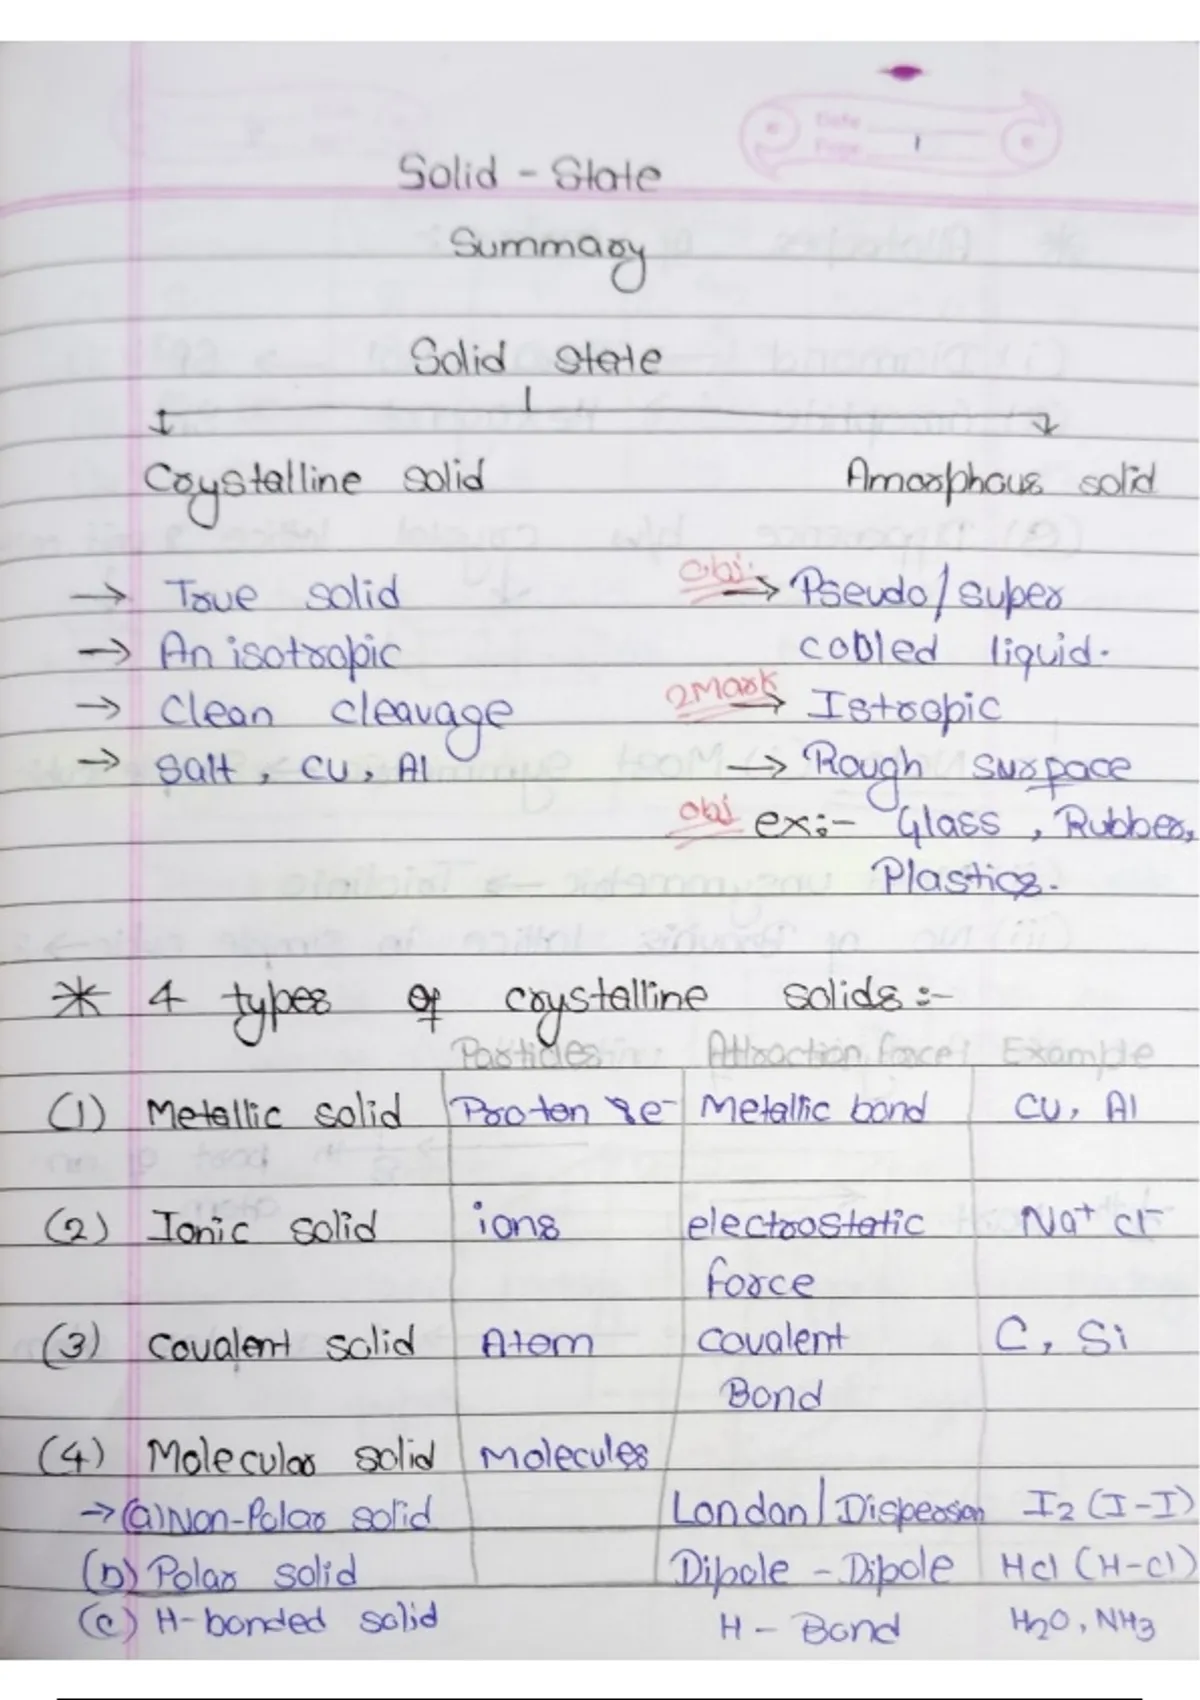 Date
Page 1
Solid - State
Summary
Solid state
Crystalline solid Amorphous solid
→ True solid obj. → Pseudo/super
→ An isotropic cooled liquid.
→ Clean cleavage 2Mark → Istropic
→ Salt, Cu, Al → Rough surface
obj ex:- Glass, Rubber,
Plastics.
* 4 types of crystalline solids :-
Particles Attraction force Example
(1) Metallic solid Proton & e- Metallic bond Cu, Al
(2) Ionic solid ions electrostatic Na+ cl-
force
(3) Covalent solid Atom covalent C, Si
Bond
(4) Molecular solid molecules
→ (a) Non-Polar solid London/Dispersion I2 (I-I)
(b) Polar solid Dipole - Dipole Hcl (H-cl)
(c) H-bonded solid H - Bond H2O, NH3